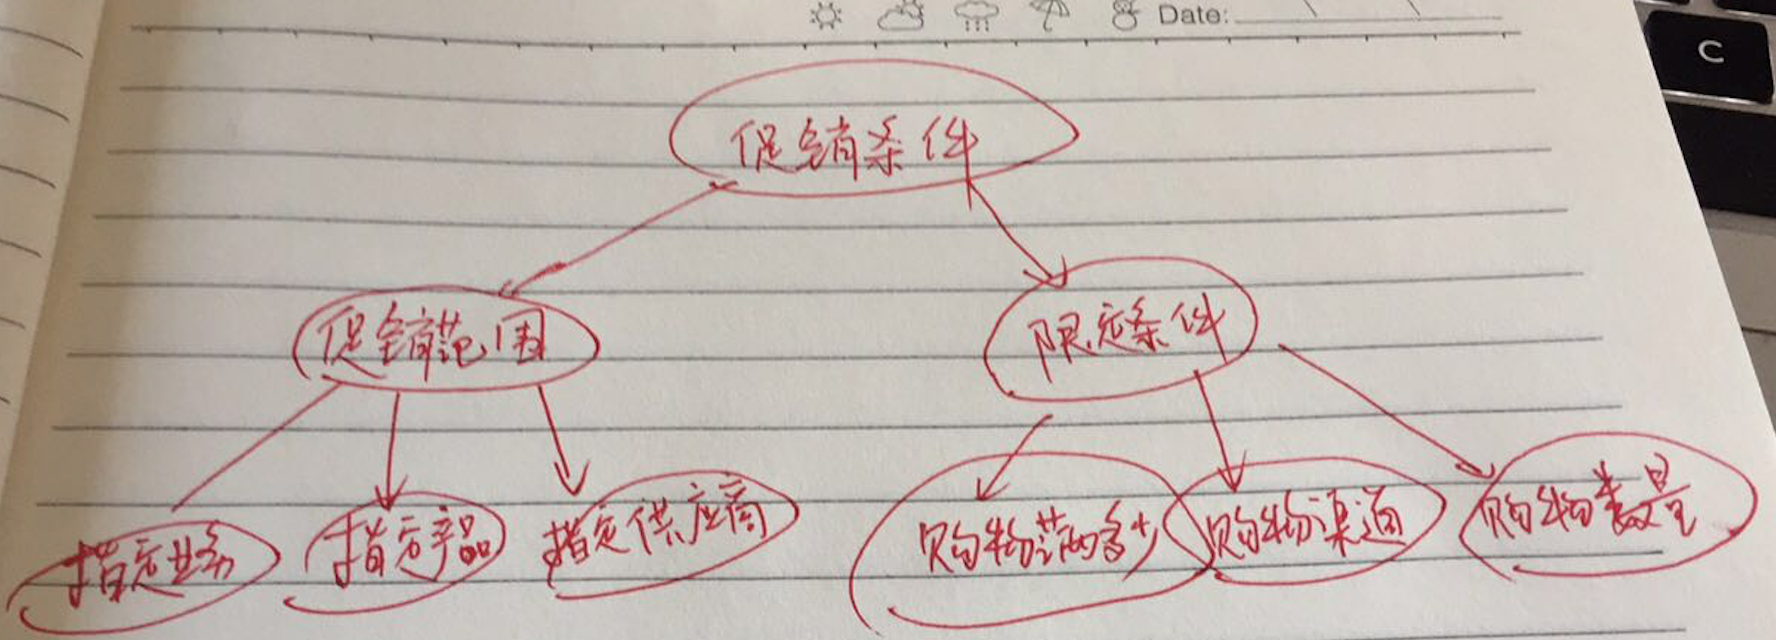 Date:
C
促销条件
促销范围
限定条件
指定业务
指定产品
指定供应商
购物满多少
购物渠道
购物数量